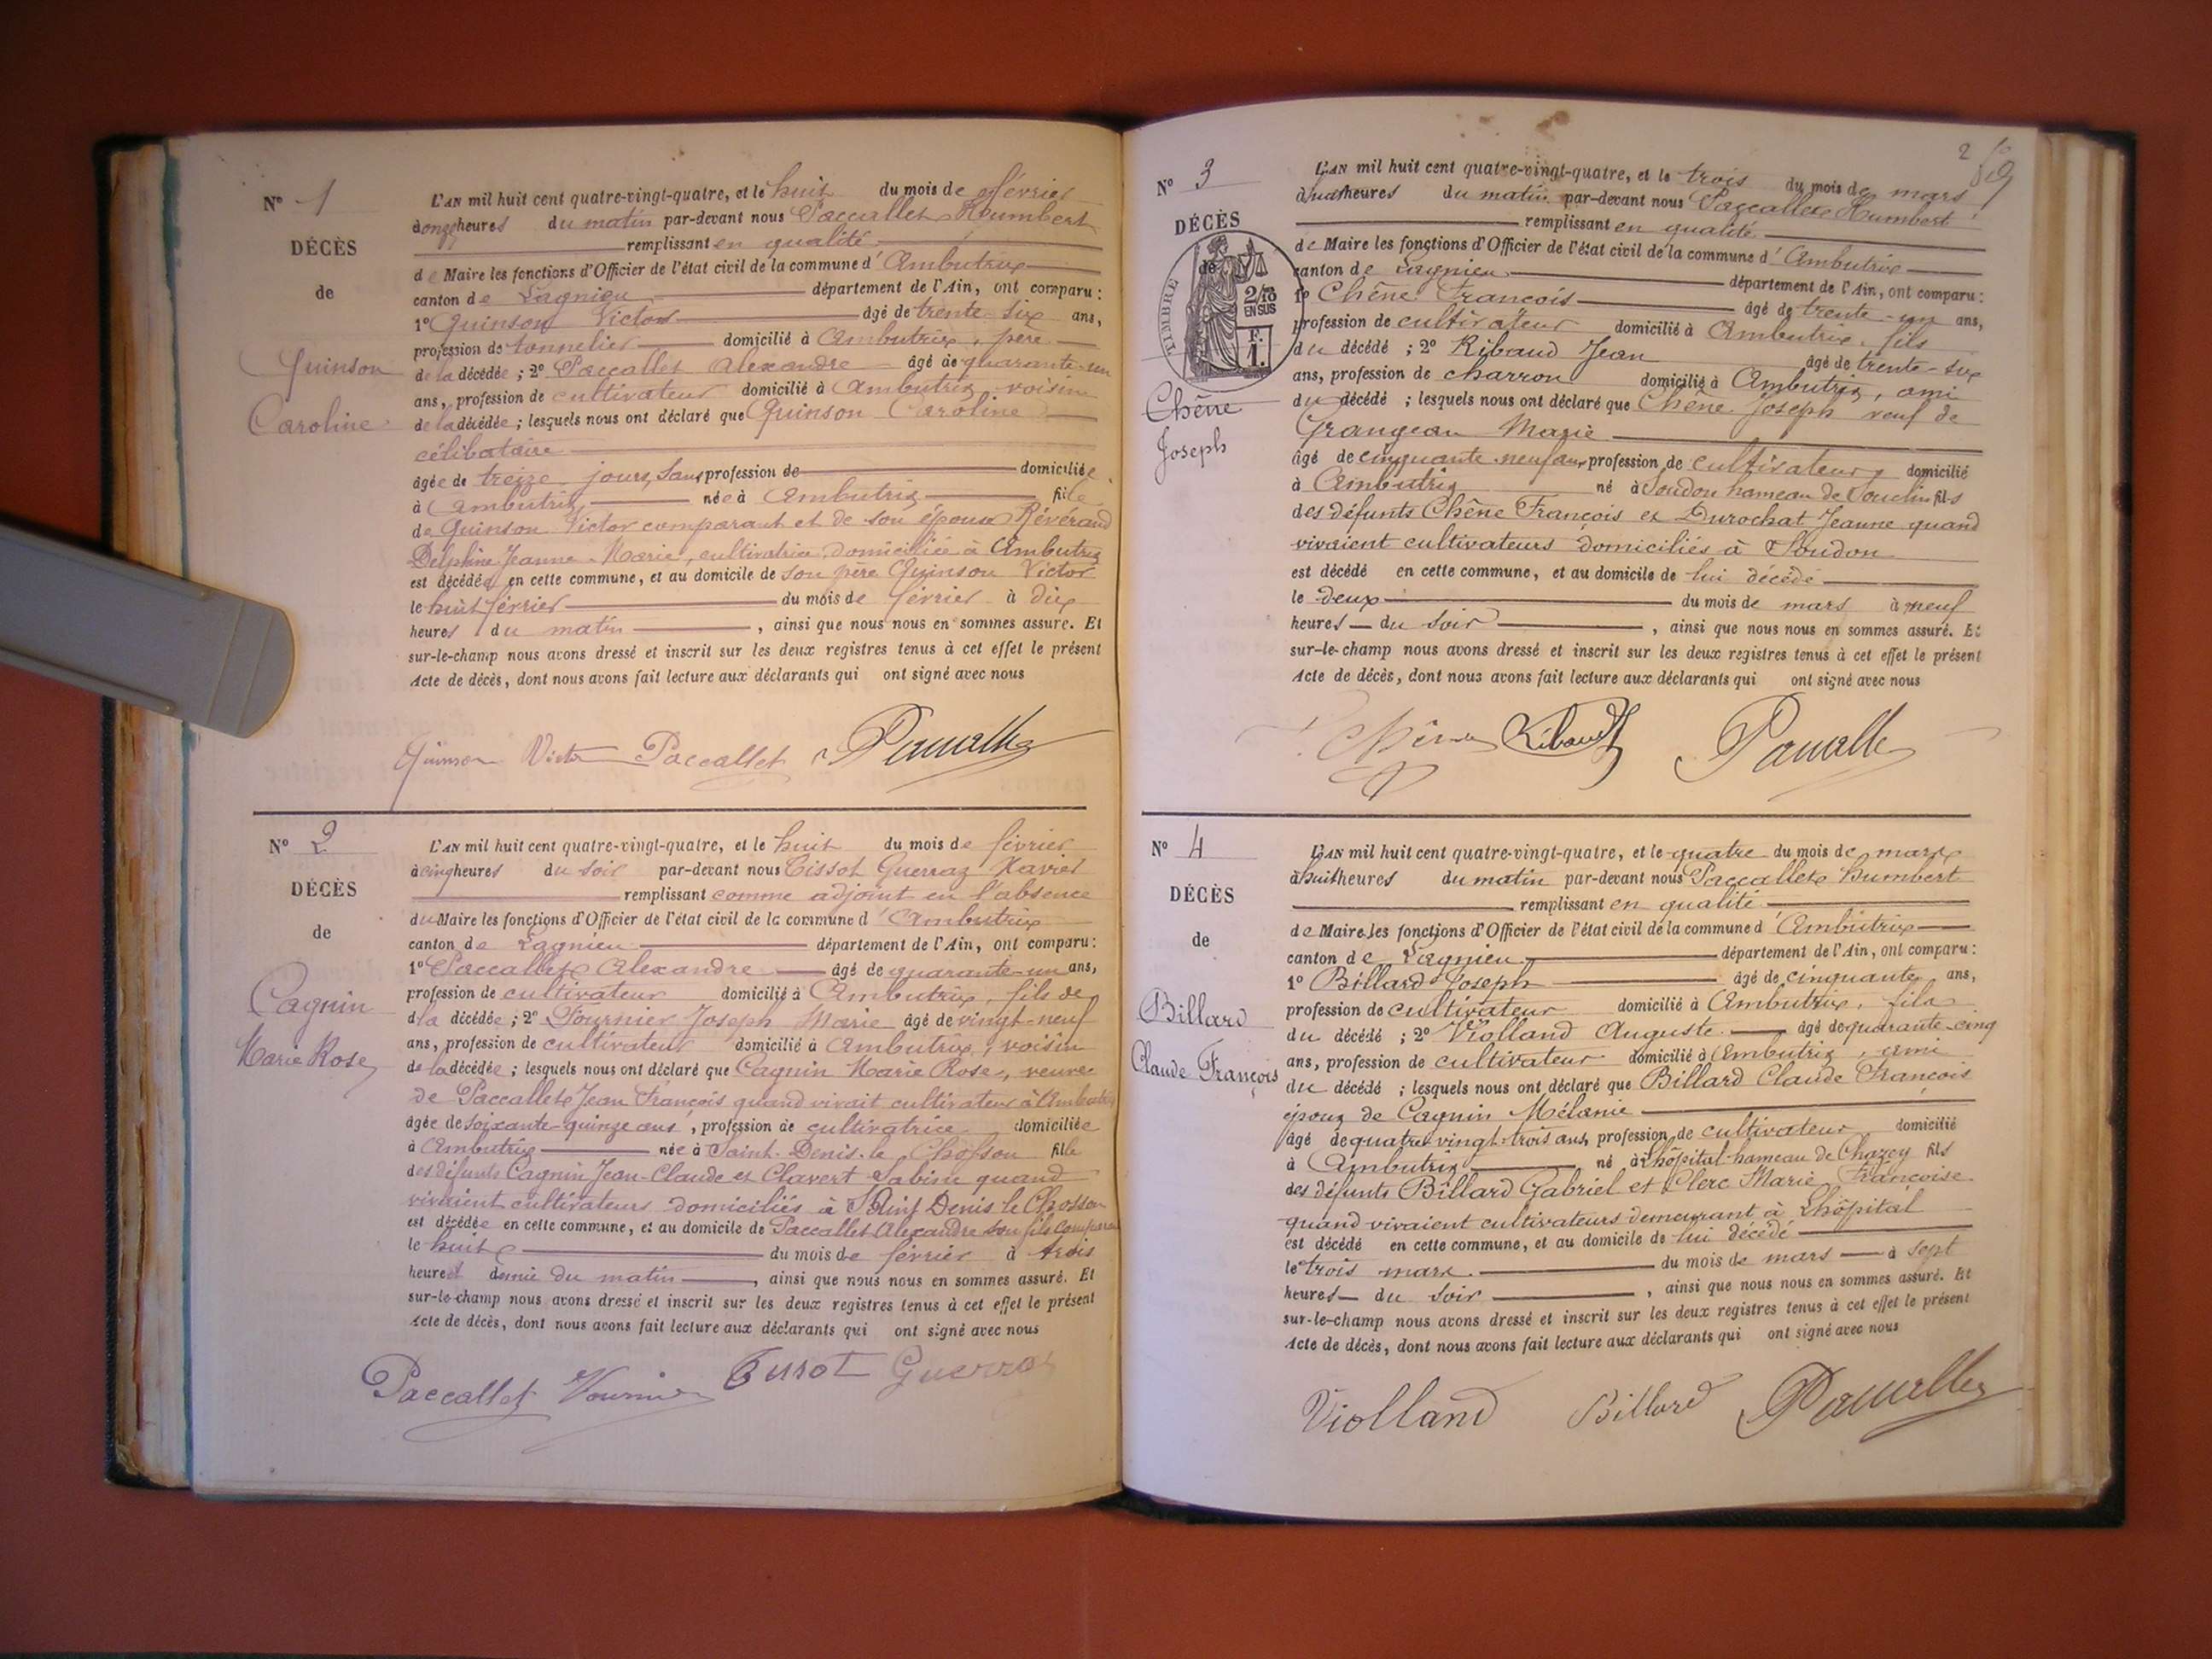 N° 1
DÉCÈS
de
Quinson
Caroline
L'AN mil huit cent quatre-vingt-quatre, et le huit du mois de février
à onze heures du matin par-devant nous Paccallet Humbert
remplissant en qualité
de Maire les fonctions d'Officier de l'état civil de la commune d'Ambutrix
canton de Lagnieu département de l'Ain, ont comparu :
1° Quinson Victor âgé de trente-six ans,
profession de tonnelier domicilié à Ambutrix, père
de la décédée ; 2° Paccallet Alexandre âgé de quarante-un
ans, profession de cultivateur domicilié à Ambutrix voisin
de la décédée ; lesquels nous ont déclaré que Quinson Caroline
célibataire
âgée de treize jours, sans profession de domiciliée
à Ambutrix née à Ambutrix fille
de Quinson Victor comparant et de son épouse Révérand
Delphine Jeanne-Marie, cultivatrice domiciliée à Ambutrix
est décédée en cette commune, et au domicile de son père Quinson Victor
le huit février du mois de février à dix
heures du matin , ainsi que nous nous en sommes assuré. Et
sur-le-champ nous avons dressé et inscrit sur les deux registres tenus à cet effet le présent
Acte de décès, dont nous avons fait lecture aux déclarants qui ont signé avec nous
Quinson Victor Paccallet Paccallet
N° 2
DÉCÈS
de
Cagnin
Marie Rose
L'AN mil huit cent quatre-vingt-quatre, et le huit du mois de février
à cinq heures du soir par-devant nous Tissot Guerraz Xavier
remplissant comme adjoint en l'absence
du Maire les fonctions d'Officier de l'état civil de la commune d'Ambutrix
canton de Lagnieu département de l'Ain, ont comparu :
1° Paccallet Alexandre âgé de quarante-un ans,
profession de cultivateur domicilié à Ambutrix, fils de
d la décédée ; 2° Fournier Joseph Marie âgé de vingt-neuf
ans, profession de cultivateur domicilié à Ambutrix, voisin
de la décédée ; lesquels nous ont déclaré que Cagnin Marie Rose, veuve
de Paccallet Jean François quand vivait cultivateur à Ambutrix
âgée de soixante-quinze ans, profession de cultivatrice domiciliée
à Ambutrix née à Saint-Denis-le Chosson fille
des défunts Cagnin Jean-Claude et Clavert Sabine quand
vivaient cultivateurs domiciliés à Saint Denis le Chosson
est décédée en cette commune, et au domicile de Paccallet Alexandre son fils comparant
le huit du mois de février à trois
heures demie du matin , ainsi que nous nous en sommes assuré. Et
sur-le-champ nous avons dressé et inscrit sur les deux registres tenus à cet effet le présent
Acte de décès, dont nous avons fait lecture aux déclarants qui ont signé avec nous
Paccallet Fournier Tissot Guerraz
2
N° 3
DÉCÈS
de
TIMBRE
2/10
EN SUS
F.
1.
Chêne
Joseph
L'AN mil huit cent quatre-vingt-quatre, et le trois du mois de mars
à huit heures du matin par-devant nous Paccallet Humbert
remplissant en qualité
de Maire les fonctions d'Officier de l'état civil de la commune d'Ambutrix
canton de Lagnieu département de l'Ain, ont comparu :
1° Chêne François âgé de trente-un ans,
profession de cultivateur domicilié à Ambutrix, fils
du décédé ; 2° Ribaud Jean âgé de trente-six
ans, profession de charron domicilié à Ambutrix, ami
du décédé ; lesquels nous ont déclaré que Chêne Joseph veuf de
Grangean Marie
âgé de cinquante-neuf ans, profession de cultivateur, domicilié
à Ambutrix né à Soudon hameau de Souclin fils
des défunts Chêne François et Durochat Jeanne quand
vivaient cultivateurs domiciliés à Soudon
est décédé en cette commune, et au domicile de lui décédé
le deux du mois de mars à neuf
heures du soir , ainsi que nous nous en sommes assuré. Et
sur-le-champ nous avons dressé et inscrit sur les deux registres tenus à cet effet le présent
Acte de décès, dont nous avons fait lecture aux déclarants qui ont signé avec nous
Chêne Ribaud Paccallet
N° 4
DÉCÈS
de
Billard
Claude François
L'AN mil huit cent quatre-vingt-quatre, et le quatre du mois de mars
à huit heures du matin par-devant nous Paccallet Humbert
remplissant en qualité
de Maire les fonctions d'Officier de l'état civil de la commune d'Ambutrix
canton de Lagnieu département de l'Ain, ont comparu :
1° Billard Joseph âgé de cinquante ans,
profession de cultivateur domicilié à Ambutrix, fils
du décédé ; 2° Violland Auguste âgé de quarante-cinq
ans, profession de cultivateur domicilié à Ambutrix, ami
du décédé ; lesquels nous ont déclaré que Billard Claude François
époux de Cagnin Mélanie
âgé de quatre-vingt-trois ans, profession de cultivateur domicilié
à Ambutrix né à Lhôpital hameau de Chazey fils
des défunts Billard Gabriel et Clerc Marie Françoise
quand vivaient cultivateurs demeurant à Lhôpital
est décédé en cette commune, et au domicile de lui décédé
le trois mars du mois de mars à sept
heures du soir , ainsi que nous nous en sommes assuré. Et
sur-le-champ nous avons dressé et inscrit sur les deux registres tenus à cet effet le présent
Acte de décès, dont nous avons fait lecture aux déclarants qui ont signé avec nous
Violland Billard Paccallet